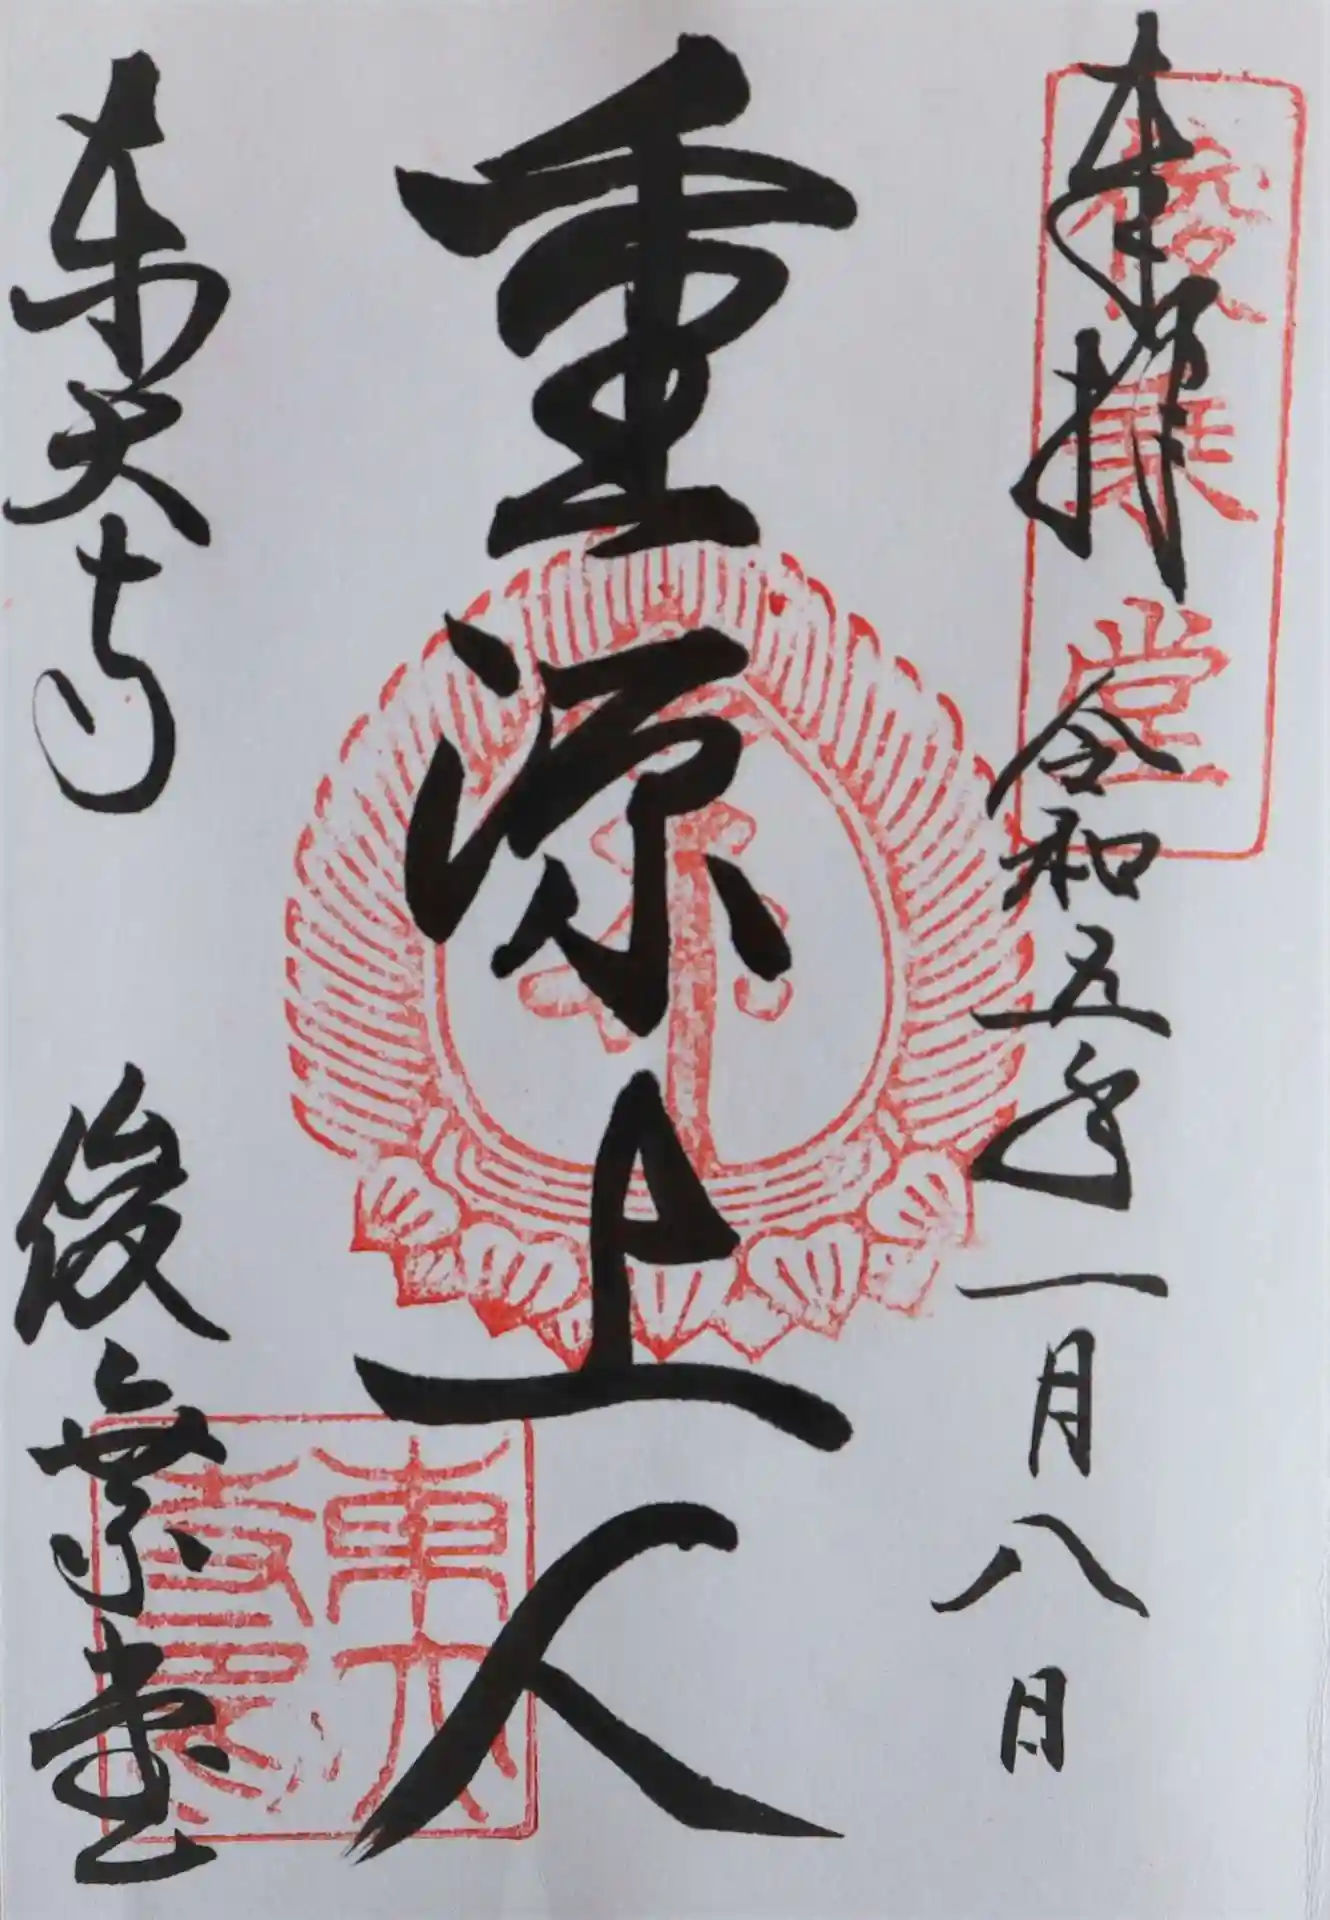 奉拝 令和五年一月八日
俊乗堂
重源上人
東大寺 俊乗堂
東大寺印